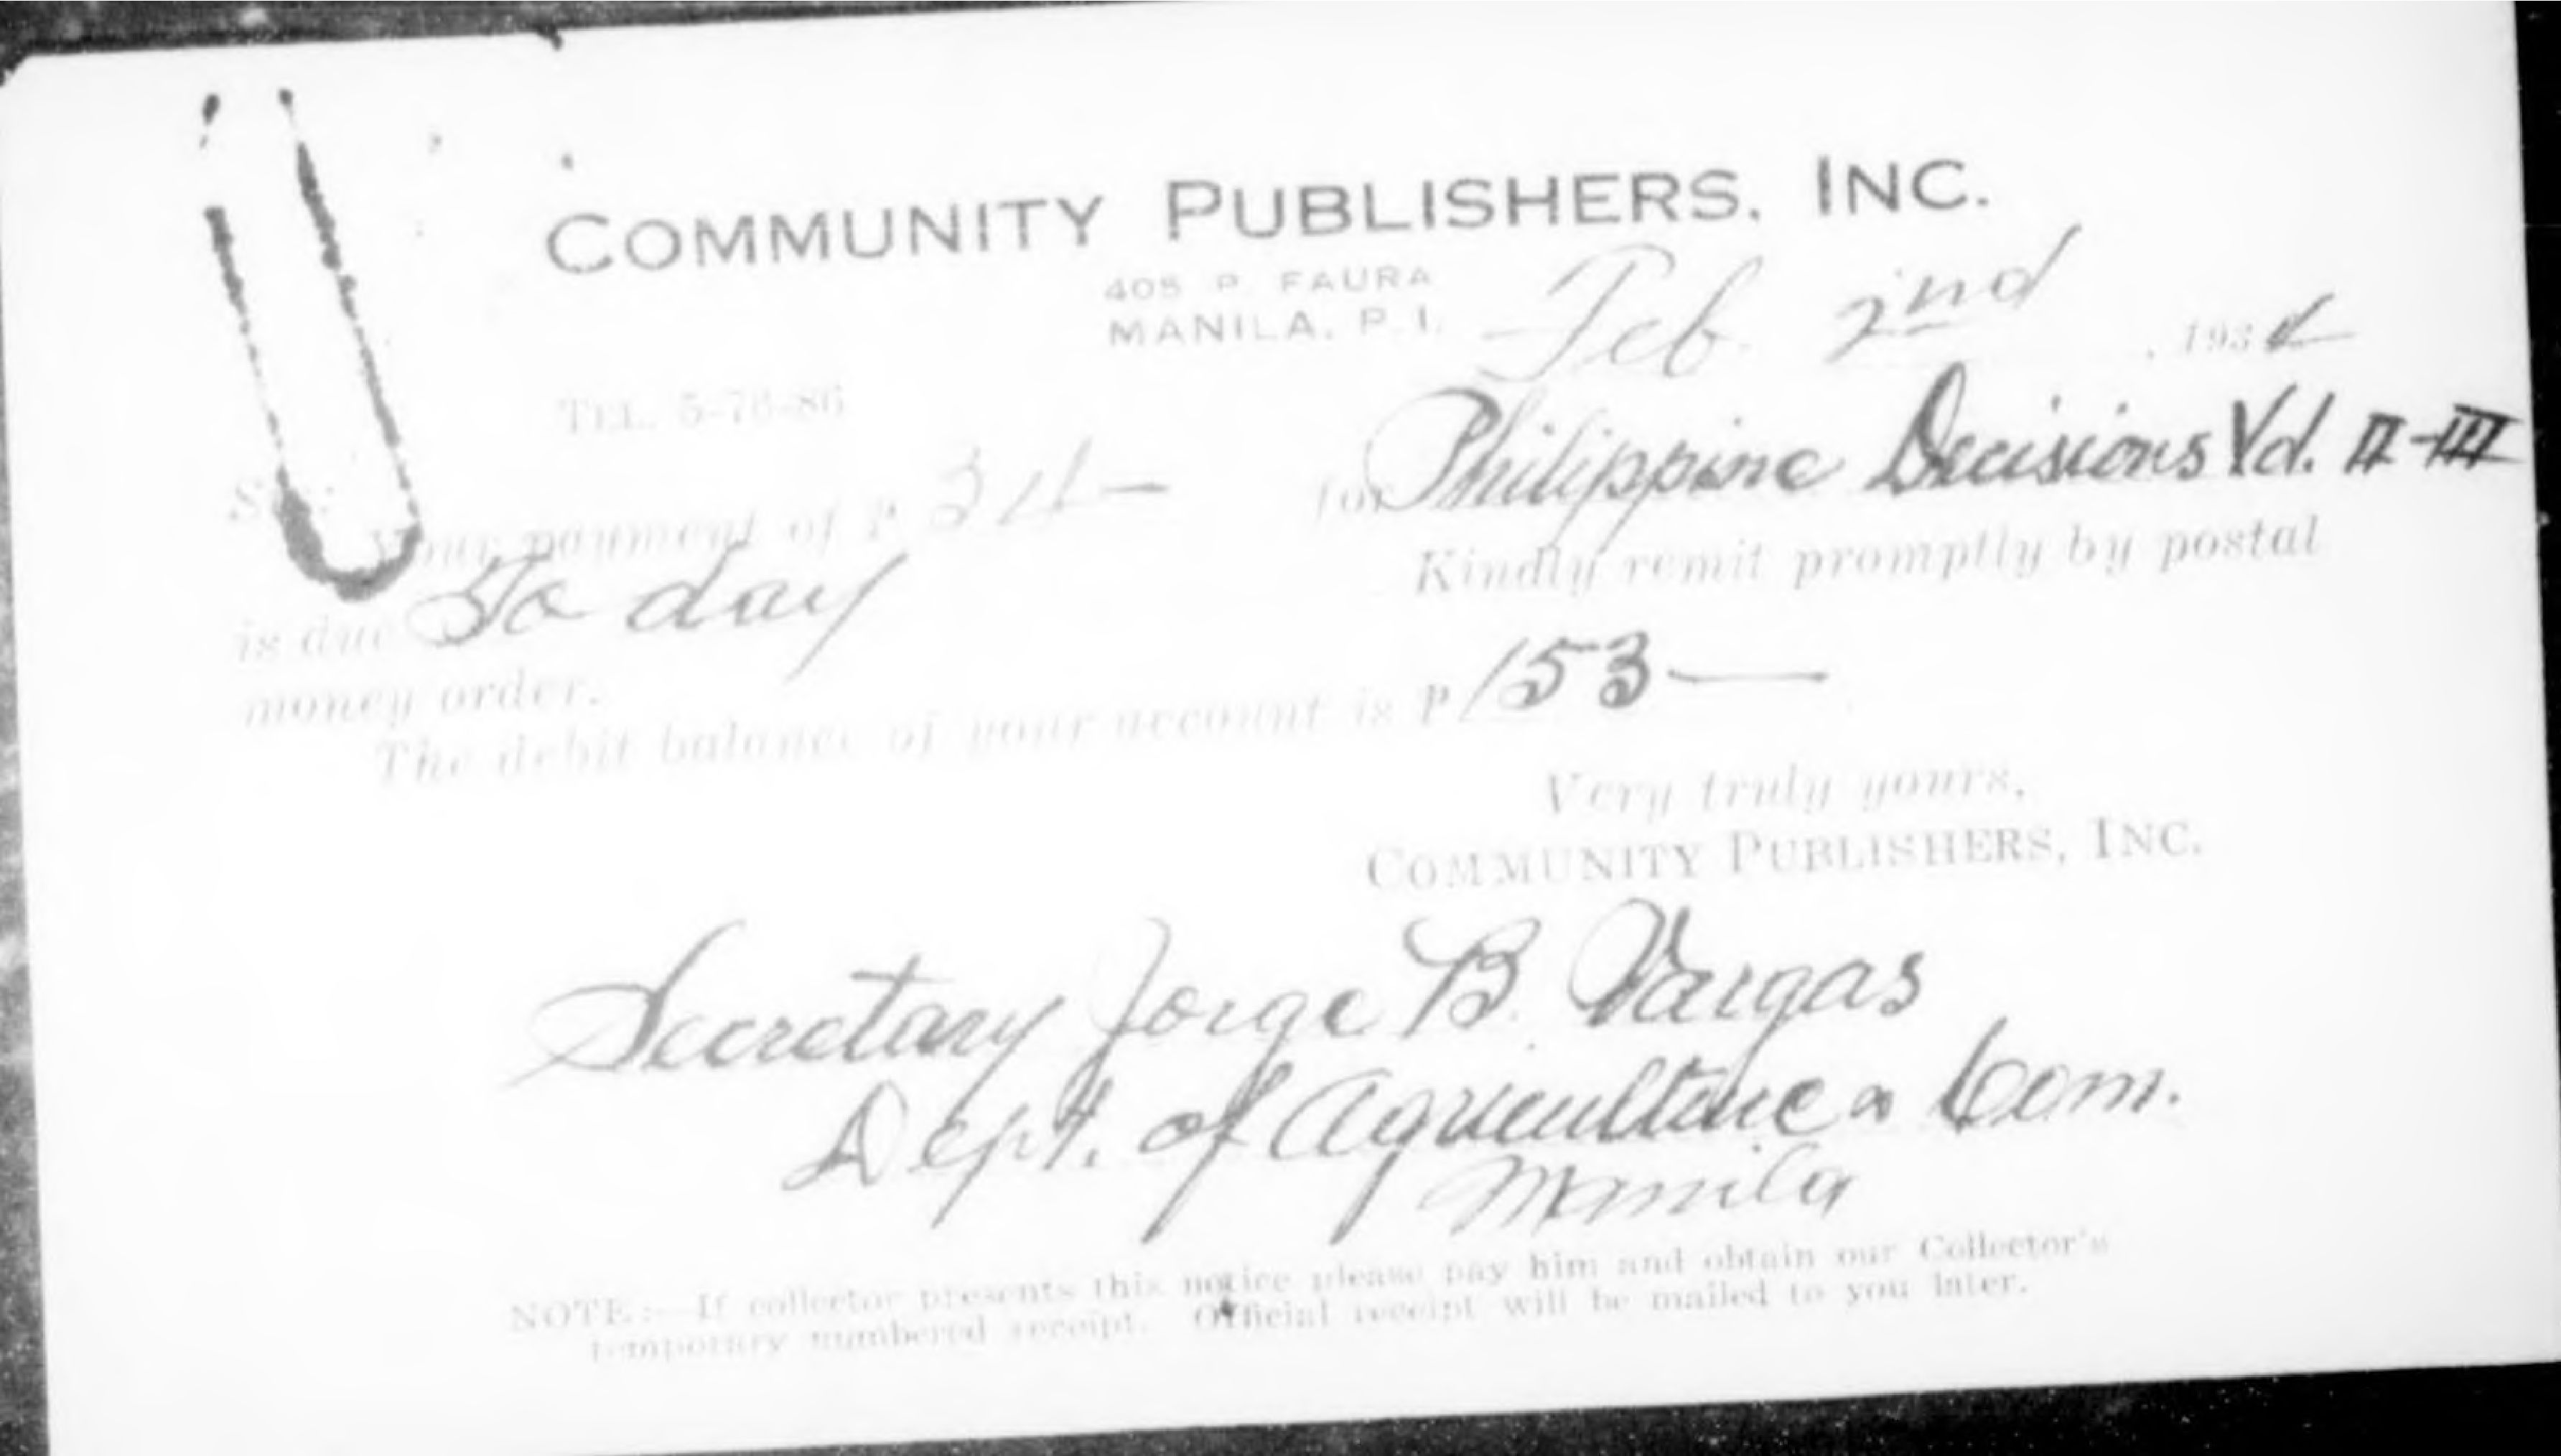 COMMUNITY PUBLISHERS, INC.
405 P. FAURA
MANILA, P. I.
Feb. 2nd, 1934
TEL. 5-76-86
Sir:
Your payment of ₱ 34— for Philippine Decisions Vol. II-III
is due To day Kindly remit promptly by postal
money order.
The debit balance of your account is ₱ 153—
Very truly yours,
COMMUNITY PUBLISHERS, INC.
Secretary Jorge B. Vargas
Dept. of Agriculture & Com.
Manila
NOTE:—If collector presents this notice please pay him and obtain our Collector's
temporary numbered receipt. Official receipt will be mailed to you later.